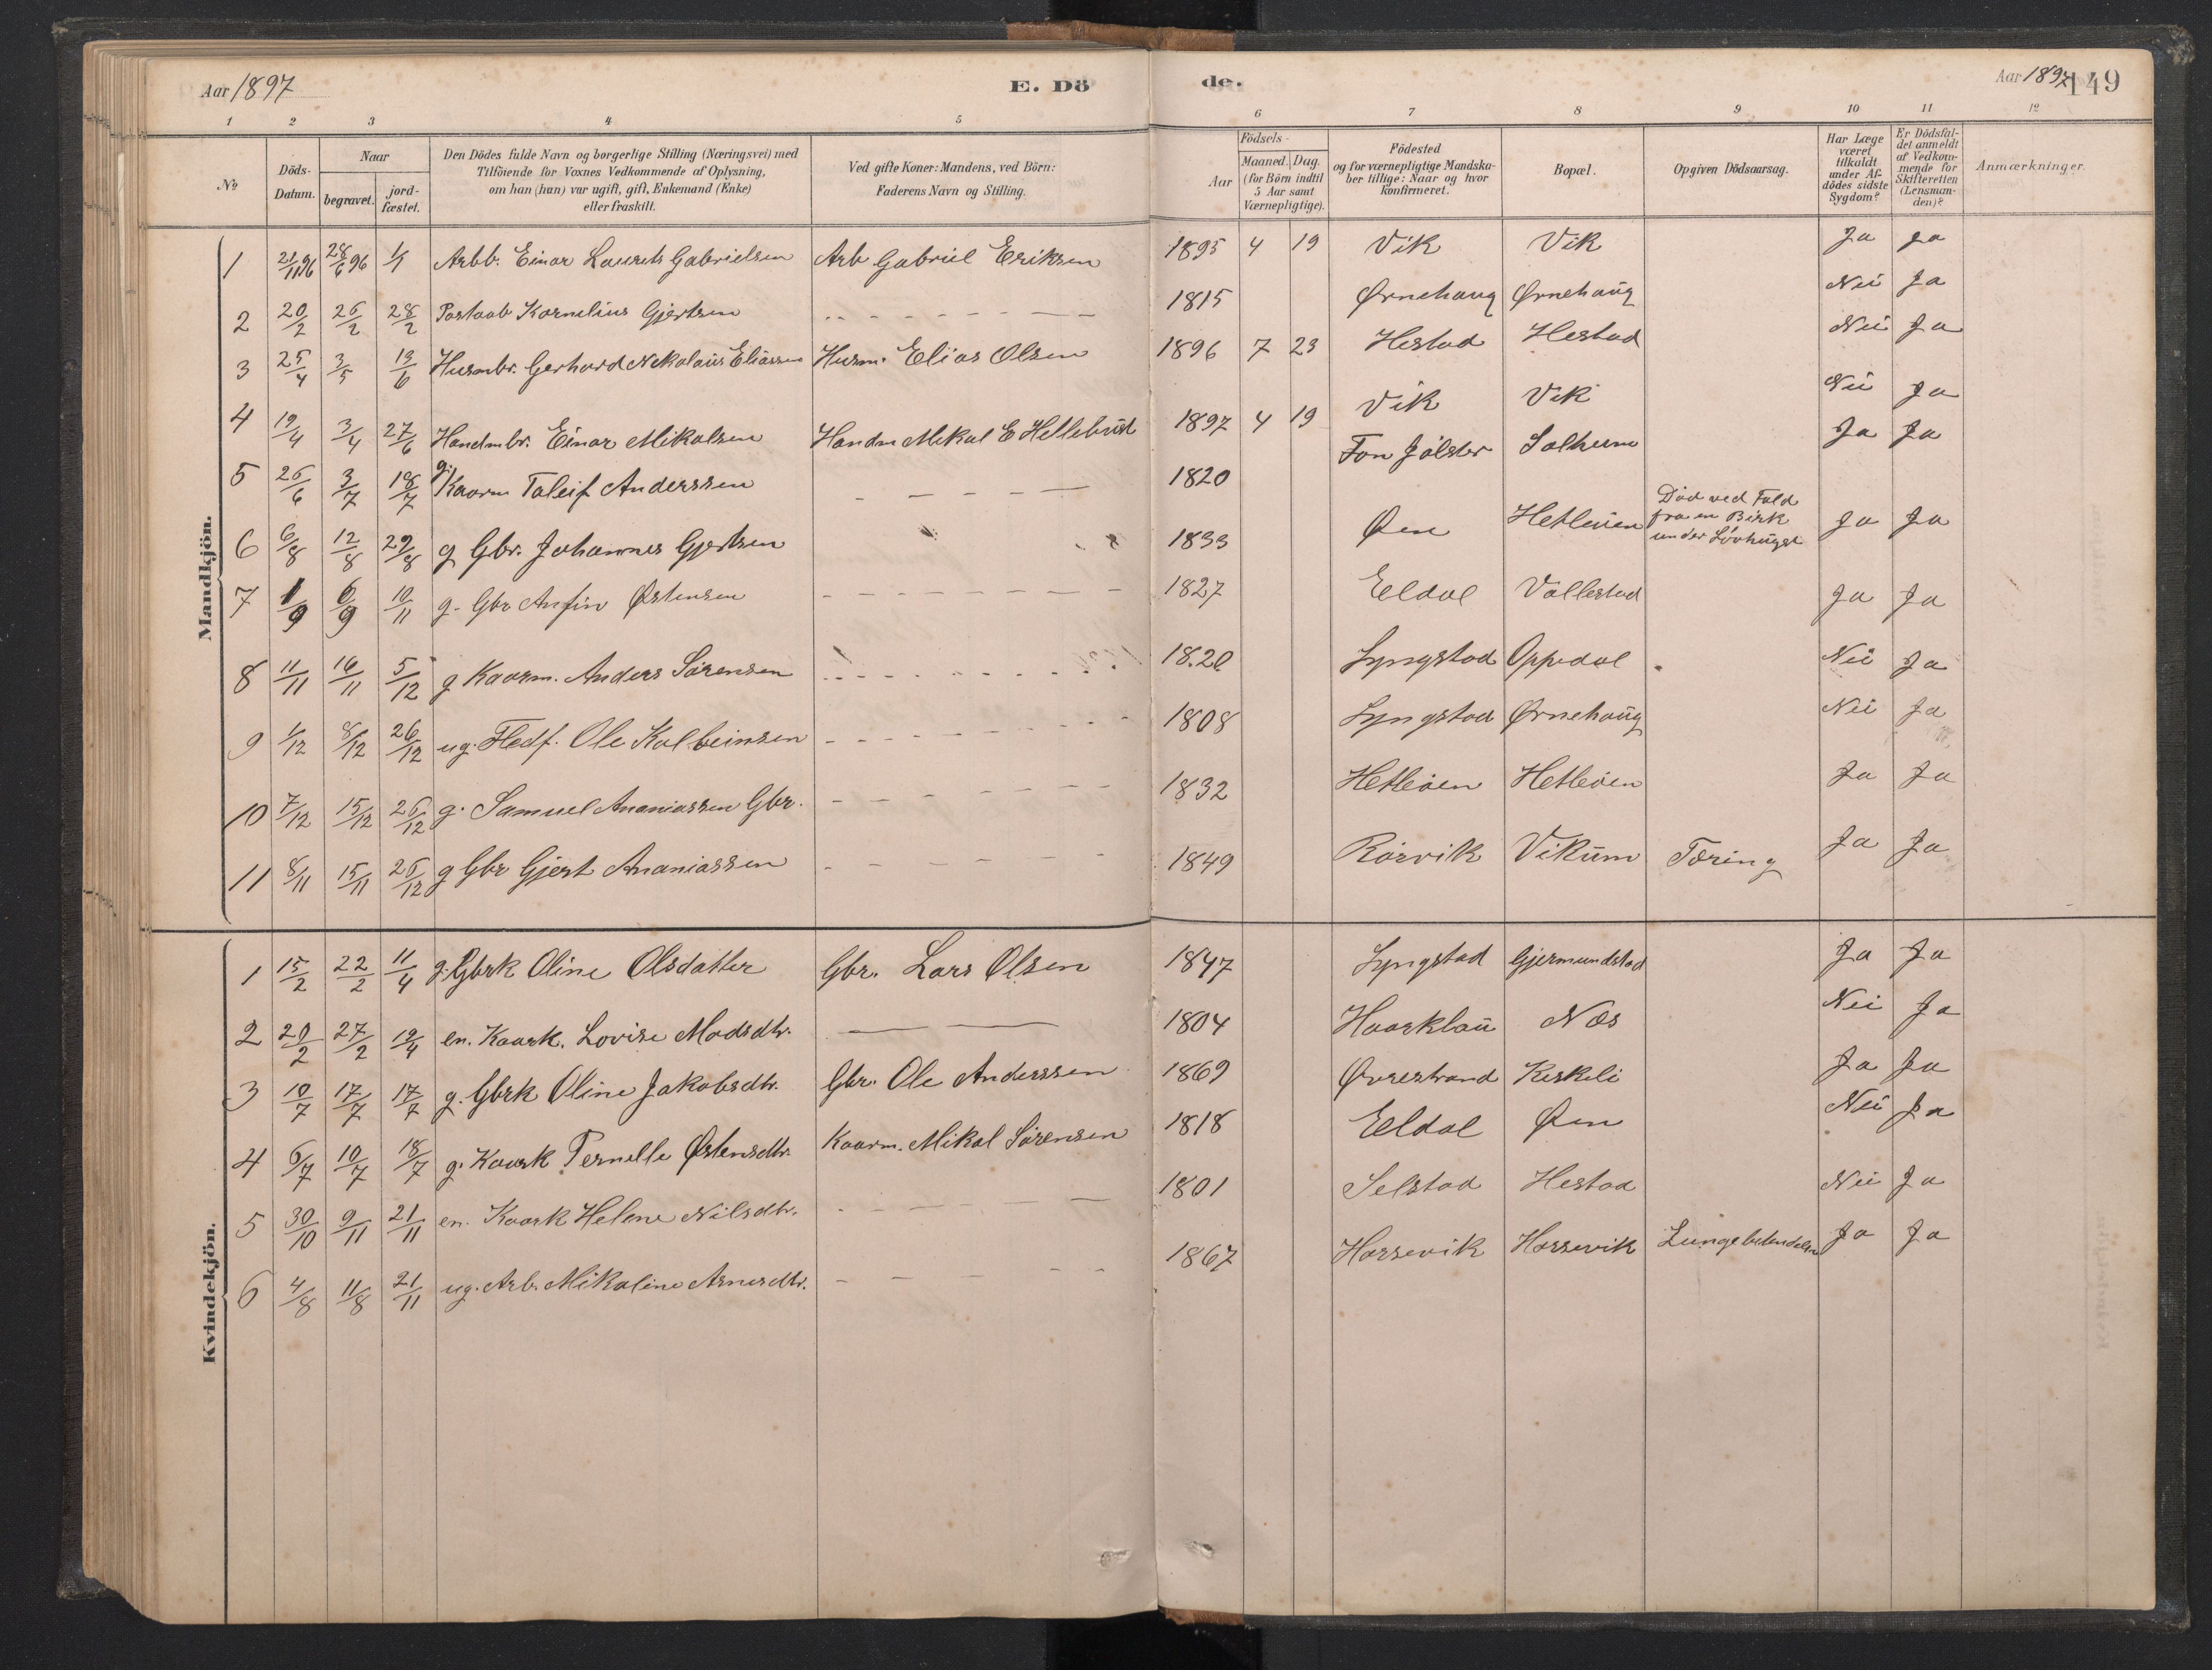 Aar 1897 E. Dö
de. Aar 1897 149
1 2 3 4 5
6 7 8 9 10 11 12
No Döds-Datum. Naar begravet. jord-fæstet. Den Dödes fulde Navn og borgerlige Stilling (Næringsvei) med Tilföiende for Voxnes Vedkommende af Oplysning, om han (hun) var ugift, gift, Enkemand (Enke) eller fraskilt. Ved gifte Koner: Mandens, ved Börn: Faderens Navn og Stilling.
Aar Födsels- Maaned. Dag. (for Börn indtil 5 Aar samt Værnepligtige). Födested og for værnepligtige Mandskaber tillige: Naar og hvor konfirmeret. Bopæl. Opgiven Dödsaarsag. Har Læge været tilkaldt under Afdödes sidste Sygdom? Er Dödsfaldet anmeldt af Vedkommende for Skifteretten (Lensmanden)? Anmærkninger.
Mandkjön.
1 21/11 96 28/6 96 1/1 Arbb. Einar Laurits Gabrielsen Arb Gabriel Eriksen 1895 4 19 Vik Vik Ja Ja
2 20/2 26/2 28/2 Kornelius Gjertsen 1815 Ørnehaug Ørnehaug Nei Ja
3 25/4 3/5 13/6 Husmbr. Gerhard Nikolaus Eliassen Husm. Elias Olsen 1896 7 23 Hestad Hestad Nei Ja
4 19/4 3/4 27/6 Handmbr. Einar Mikalsen Handm Mikal E Hellebust 1897 4 19 Vik Vik Nei Ja
5 26/6 3/7 18/7 g. Kaarm Taleif Anderssen 1820 Fon Jölster Solheim Ja Ja
6 6/8 12/8 29/8 g Gbr. Johannes Gjertsen 1833 Øen Hetleöen Död ved Fald fra en Birk under Lövhugst Ja Ja
7 1/9 6/9 10/11 g. Gbr Anfin Østensen 1827 Eldal Vallestad Ja Ja
8 11/11 16/11 5/12 g Kaarm. Anders Sörensen 1820 Lyngstad Oppedal Nei Ja
9 1/12 8/12 26/12 ug. Fledf. Ole Kolbeinsen 1808 Lyngstad Ørnehaug Nei Ja
10 7/12 15/12 26/12 g. Samuel Ananiassen Gbr. 1832 Hetleöen Hetleöen Ja Ja
11 8/11 15/11 26/12 g Gbr Gjert Ananiassen 1849 Rörvik Vikum Tæring Ja Ja
Kvindekjön.
1 15/2 22/2 11/4 g. Gbrk Oline Olsdatter Gbr. Lars Olsen 1847 Lyngstad Gjermundstad Ja Ja
2 20/2 27/2 19/4 en. Kaark. Lovise Madsdtr. 1804 Haarklau Næs Nei Ja
3 10/7 17/7 17/7 g. Gbrk Oline Jakobsdtr. Gbr. Ole Anderssen 1869 Øvrestrand Keskeli Ja Ja
4 6/7 10/7 18/7 g. Kaark Pernelle Østensdtr. Kaarm. Mikal Sörensen 1818 Eldal Øen Nei Ja
5 30/10 9/11 21/11 en. Kaark Helene Nilsdtr. 1801 Selstad Hestad Nei Ja
6 4/8 11/8 21/11 ug. Arb. Mikaline Arnesdtr. 1867 Horsevik Horsevik Lungebetændelse Ja Ja